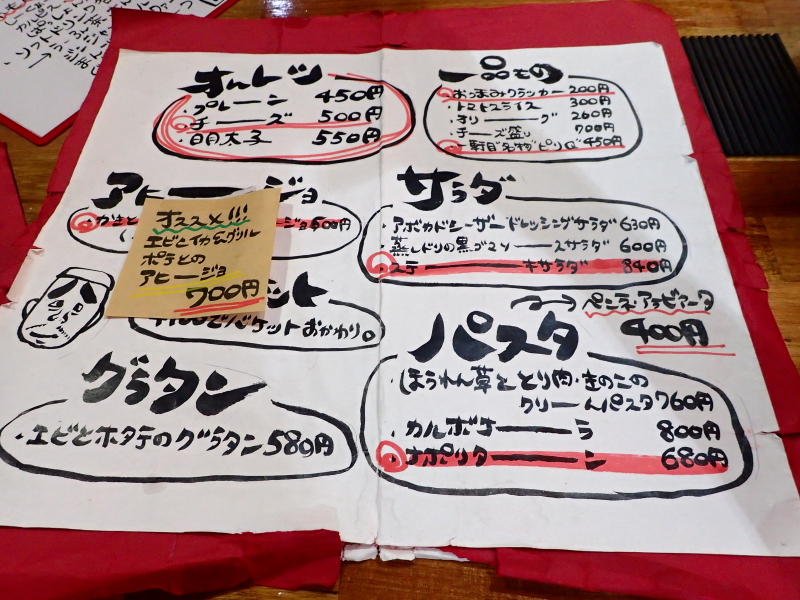 オムレツ
・プレーン 450円
・チーズ 500円
・明太子 550円
アヒージョ
ージョ600円
オススメ!!!
エビとイカ&グリル
ポテトの
アヒージョ
700円
ット
でバケットおかわり。
グラタン
・エビとホタテのグラタン580円
一品もの
・おつまみクラッカー 200円
・トマトスライス 300円
・オリーーブ 260円
・チーズ盛り 700円
サラダ
・アボカドシーザードレッシングサラダ 630円
・蒸しドリの黒ゴマソースサラダ 600円
・ステーキサラダ 840円
→ペンネ・アラビアータ
400円
パスタ
・ほうれん草ととり肉・きのこの
クリームパスタ760円
・カルボナーラ 800円
・ナポリターン 680円